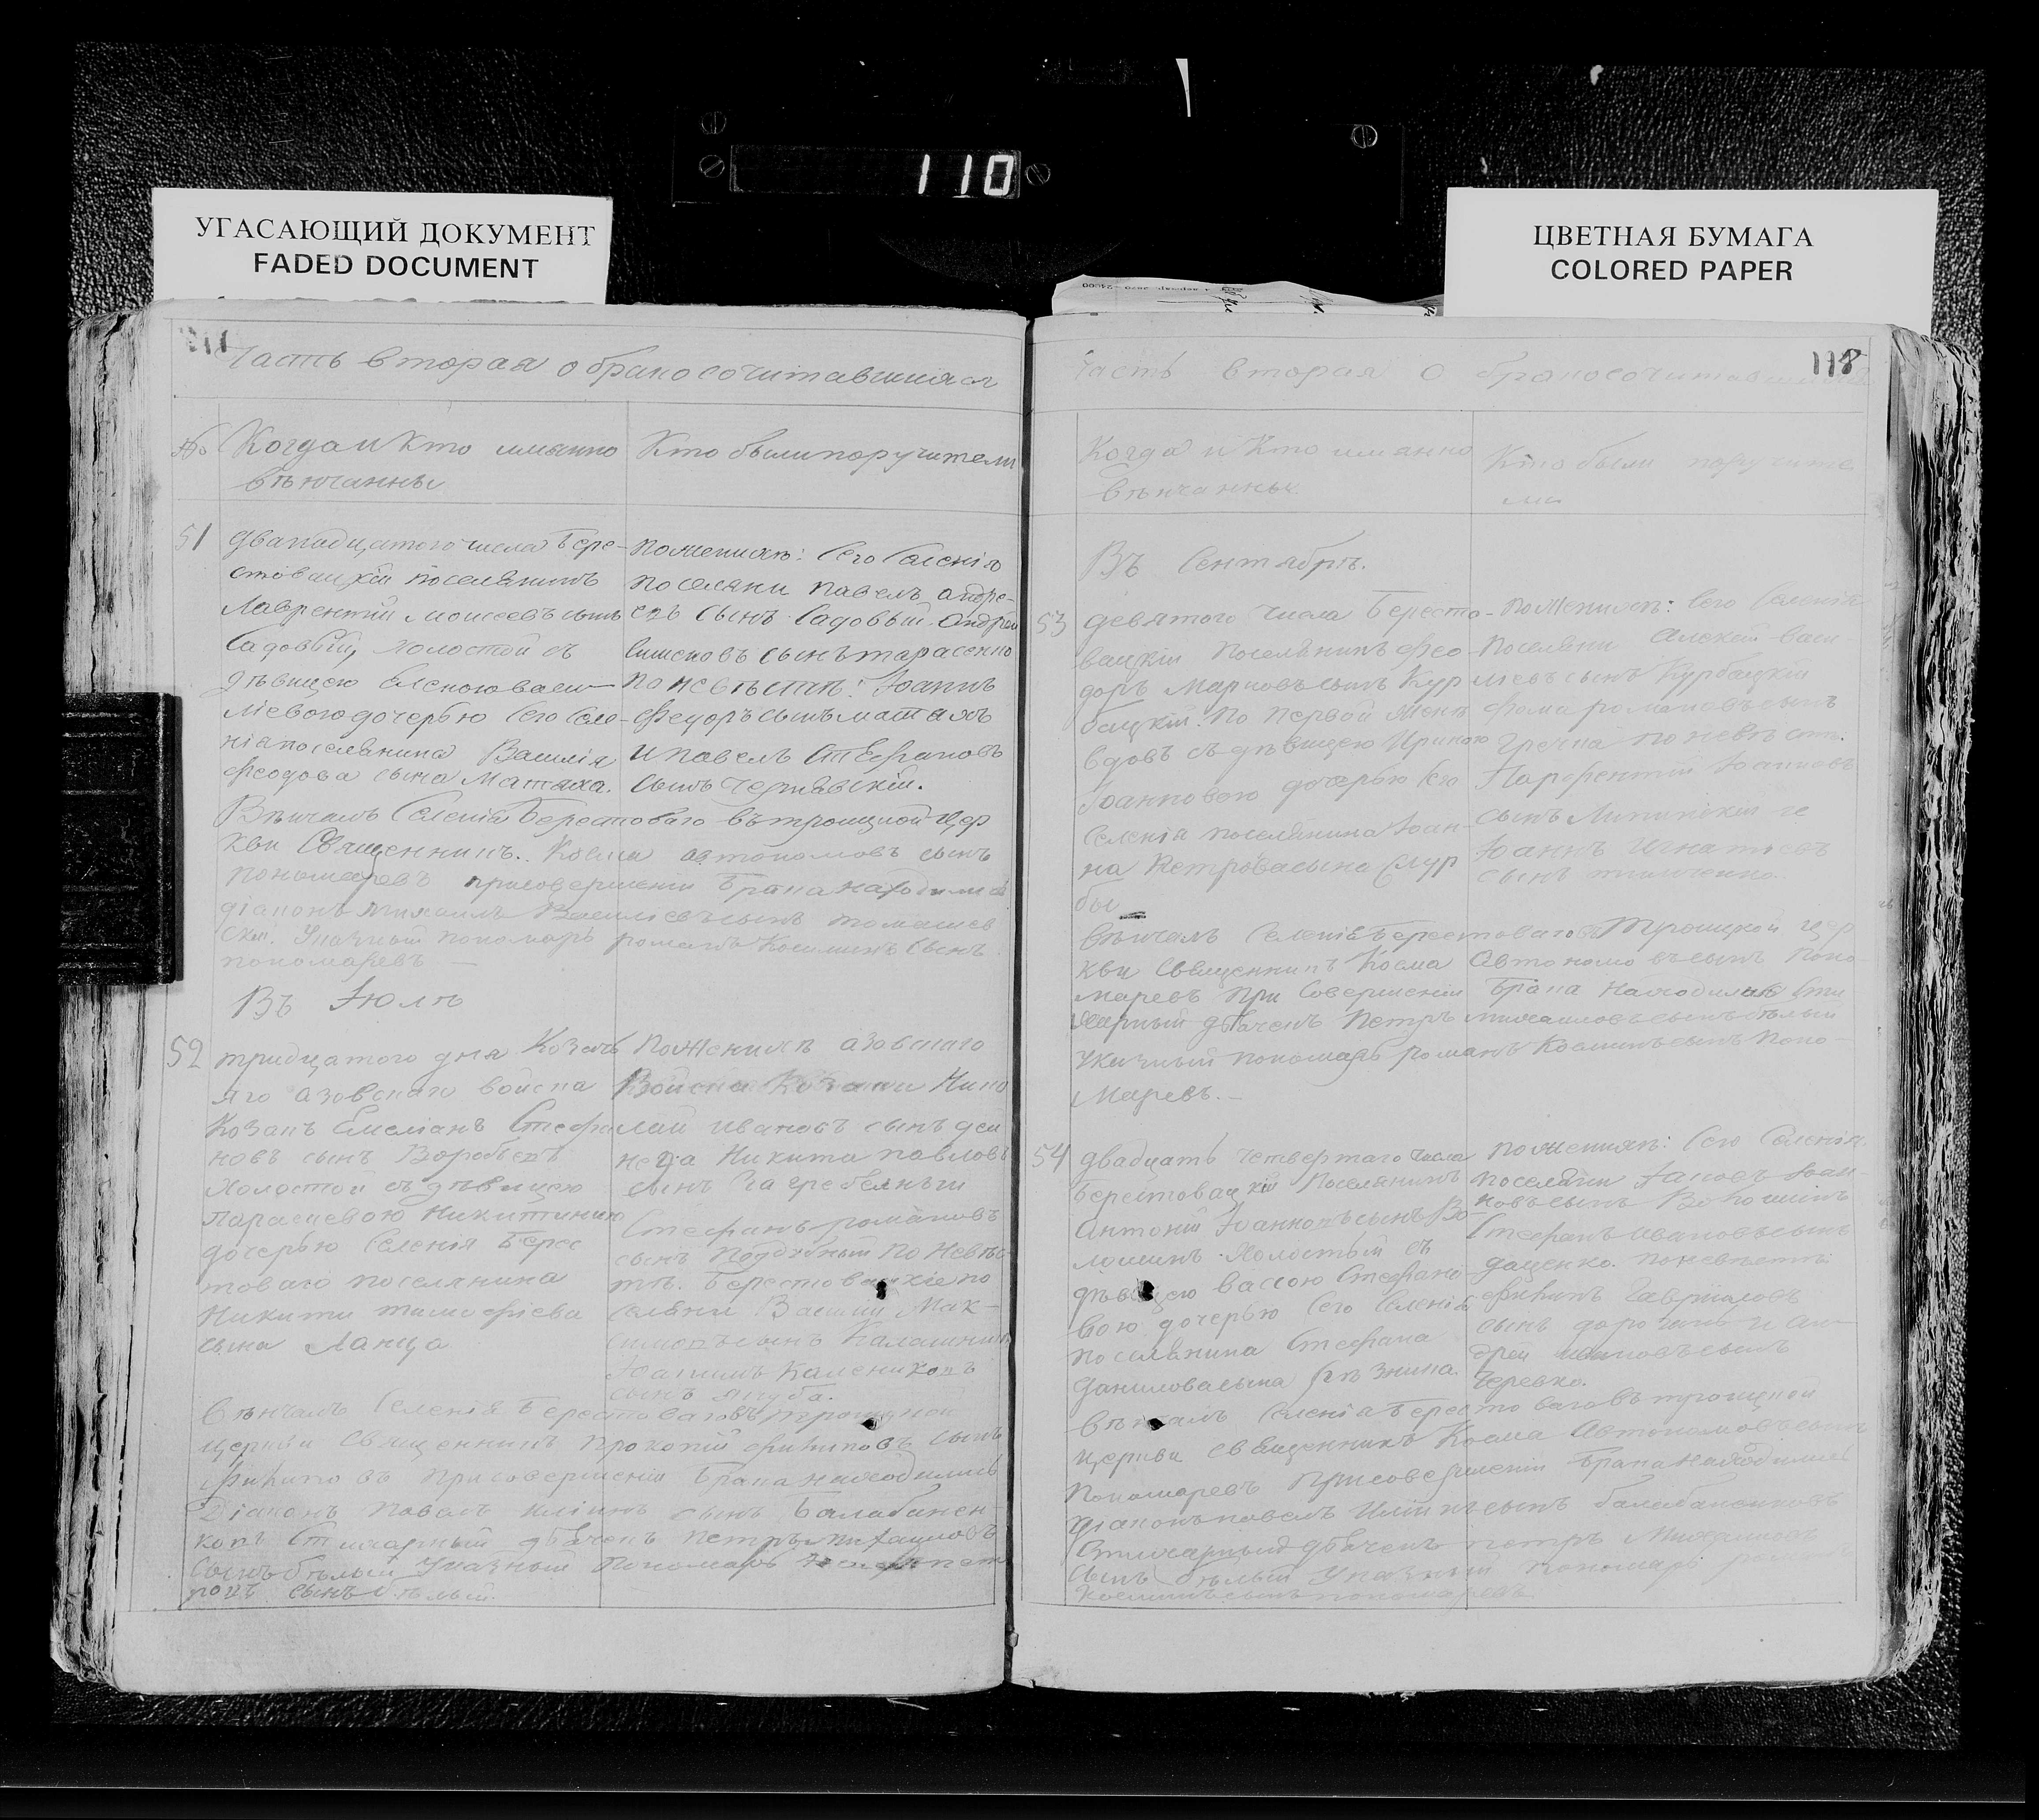 110
УГАСАЮЩИЙ ДОКУМЕНТ
FADED DOCUMENT
ЦВЕТНАЯ БУМАГА
COLORED PAPER
Часть вторая о бракосочитавшихся
№
Когда и Кто имянно
вѣнчанны
Кто были поручители
51
дванадцатого числа Бере-
стовацкій поселянинъ
Лаврентій Моисеевъ сынъ
Садовый, холостой съ
дѣвицею Еленою Васи-
ліевою дочерью Сего Селе-
нія поселянина Василія
Феодова сына Матяха.
По женихѣ: Сего Селенія
поселяни Павелъ Андре-
евъ сынъ Садовый. Андрей
сынъ тарасенко
по невѣстѣ: Іоаннъ
Федоръ сынъ Матяхъ
и Павелъ Стефановъ
сынъ Чернявскій.
Вѣнчалъ Селенія Берестоваго въ троицкой цер
кви Священникъ Косма Автономовъ сынъ
Пономаревъ при совершеніи Брака находились
діаконъ Михаилъ Василіевъ сынъ томашев
скій. Указный пономарь романъ Косминъ сынъ
пономаревъ —
Въ Іюлѣ
52
тридцатого дня
Азовскаго войска
Козакъ Емеліанъ Стефа
новъ сынъ Воробьевъ
Холостой съ дѣвицею
Параскевою Никитиною
дочерью Селенія Берес
товаго поселянина
Никити тимофіева
сына Ланца
По женихѣ азовскаго
Войска Козаки Нико
лай Ивановъ сынъ
Никита Павловъ
сынъ Загребелный
Стефанъ романовъ
сынъ Поздубный по невѣс-
тѣ. Берестовацкіе по
селяни Василій Мак-
симовъ сынъ Калашник
Каленниковъ
сынъ
Вѣнчалъ Селенія Берестоваго въ троицкой
церкви Священникъ Прокопій Филиповъ сынъ
Филиповъ при совершеніи Брака находились
Діаконъ Павелъ Иліинъ сынъ Балабанен-
ковъ Стихарный дьячекъ Петръ Михаиловъ
сынъ бѣлый Указный Пономарь пет
ровъ сынъ бѣлый.
118
Часть вторая о бракосочитавшихся
Когда и Кто имянно
вѣнчанны
Кто были поручите
ли
Въ Сентябрѣ.
53
девятого числа Бересто-
вацкій Поселянинъ Фео-
доръ Марковъ сынъ Кур
бацкій. По первой женѣ
вдовъ съ дѣвицею Ириною
Іоанновою дочерью Сего
Селенія поселянина Іоан-
на Петрова сына
бы
По женихѣ: Сего Селенія
Поселяни Алексій Васи-
ліевъ сынъ Курбацкій
Фома романовъ сынъ
Гречка по невѣстѣ.
Парфентій Іоанновъ
сынъ Липинскій и
Іоаннъ Игнатіевъ
сынъ
Вѣнчалъ Селенія Берестоваго въ Троицкой цер
кви Священникъ Косма Автономовъ сынъ Поно-
маревъ При Совершеніи Брака Находились Сти
харный дьячекъ Петръ Михаиловъ сынъ бѣлый
Указный пономарь романъ Косминъ сынъ Поно-
Маревъ. —
54
двадцать четвертаго числа
Берестовацкій Поселянинъ
Антоній Іоанновъ сынъ Во-
лошинъ Холостый съ
дѣвицею Вассою Стефано
вою дочерью Сего Селенія
поселянина Стефана
Данилова сына
По женихѣ: Сего Селенія
поселяни Іаковъ Іоан-
новъ сынъ Волошинъ
Стефанъ Ивановъ сынъ
даценко. По невѣстѣ
Филипъ Гавриловъ
сынъ и Ан-
дрей сынъ
Черевко.
Вѣнчалъ Селенія Берестоваго въ троицкой
церкви Священникъ Косма Автономовъ сынъ
Пономаревъ При совершеніи Брака находились
діаконъ Павелъ Иліинъ сынъ балабаненковъ
Стихарный дьячекъ петръ Михаиловъ
сынъ бѣлый Указный пономарь романъ
Косминъ сынъ пономаревъ